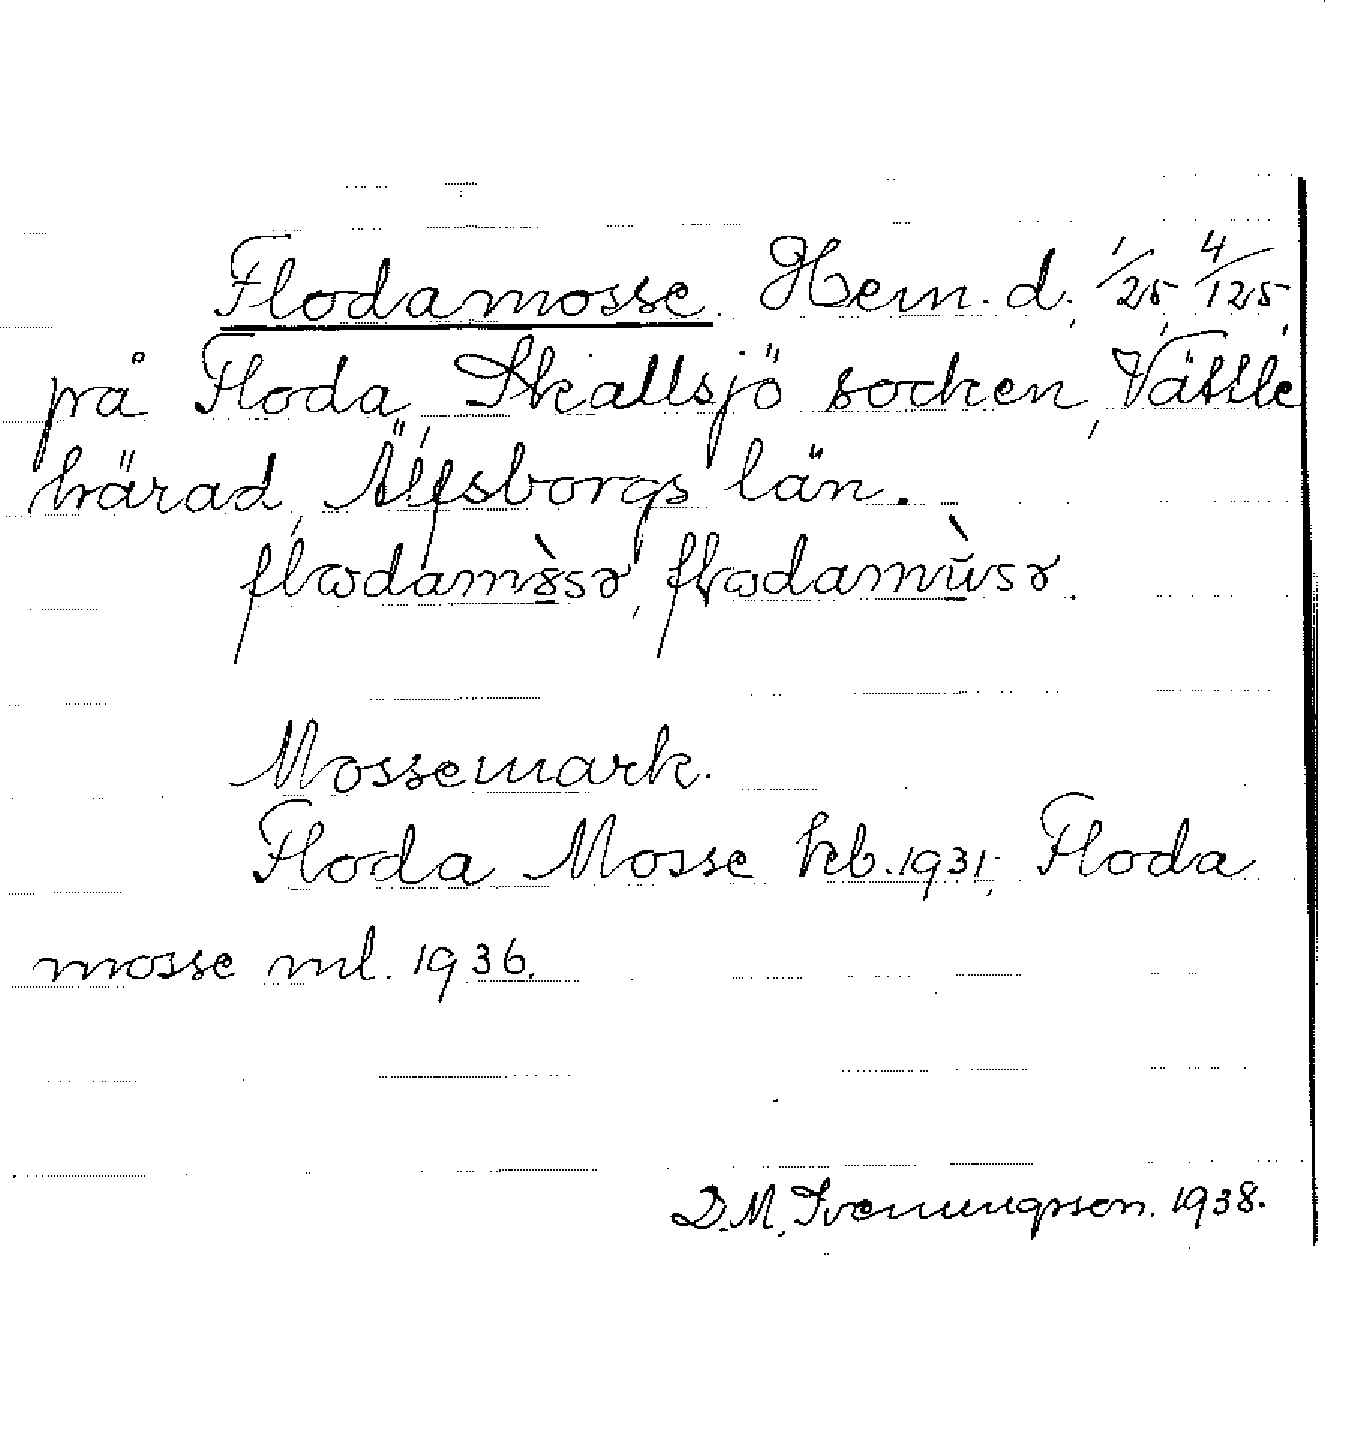 Flodamosse. Hem. d., 1/25, 4/125,
på Floda, Skallsjö socken, Vättle
härad, Älfsborgs län.
Mossemark.
Floda Mosse kb. 1931; Floda
mosse ml. 1936.
D.M. Svenungsson. 1938.